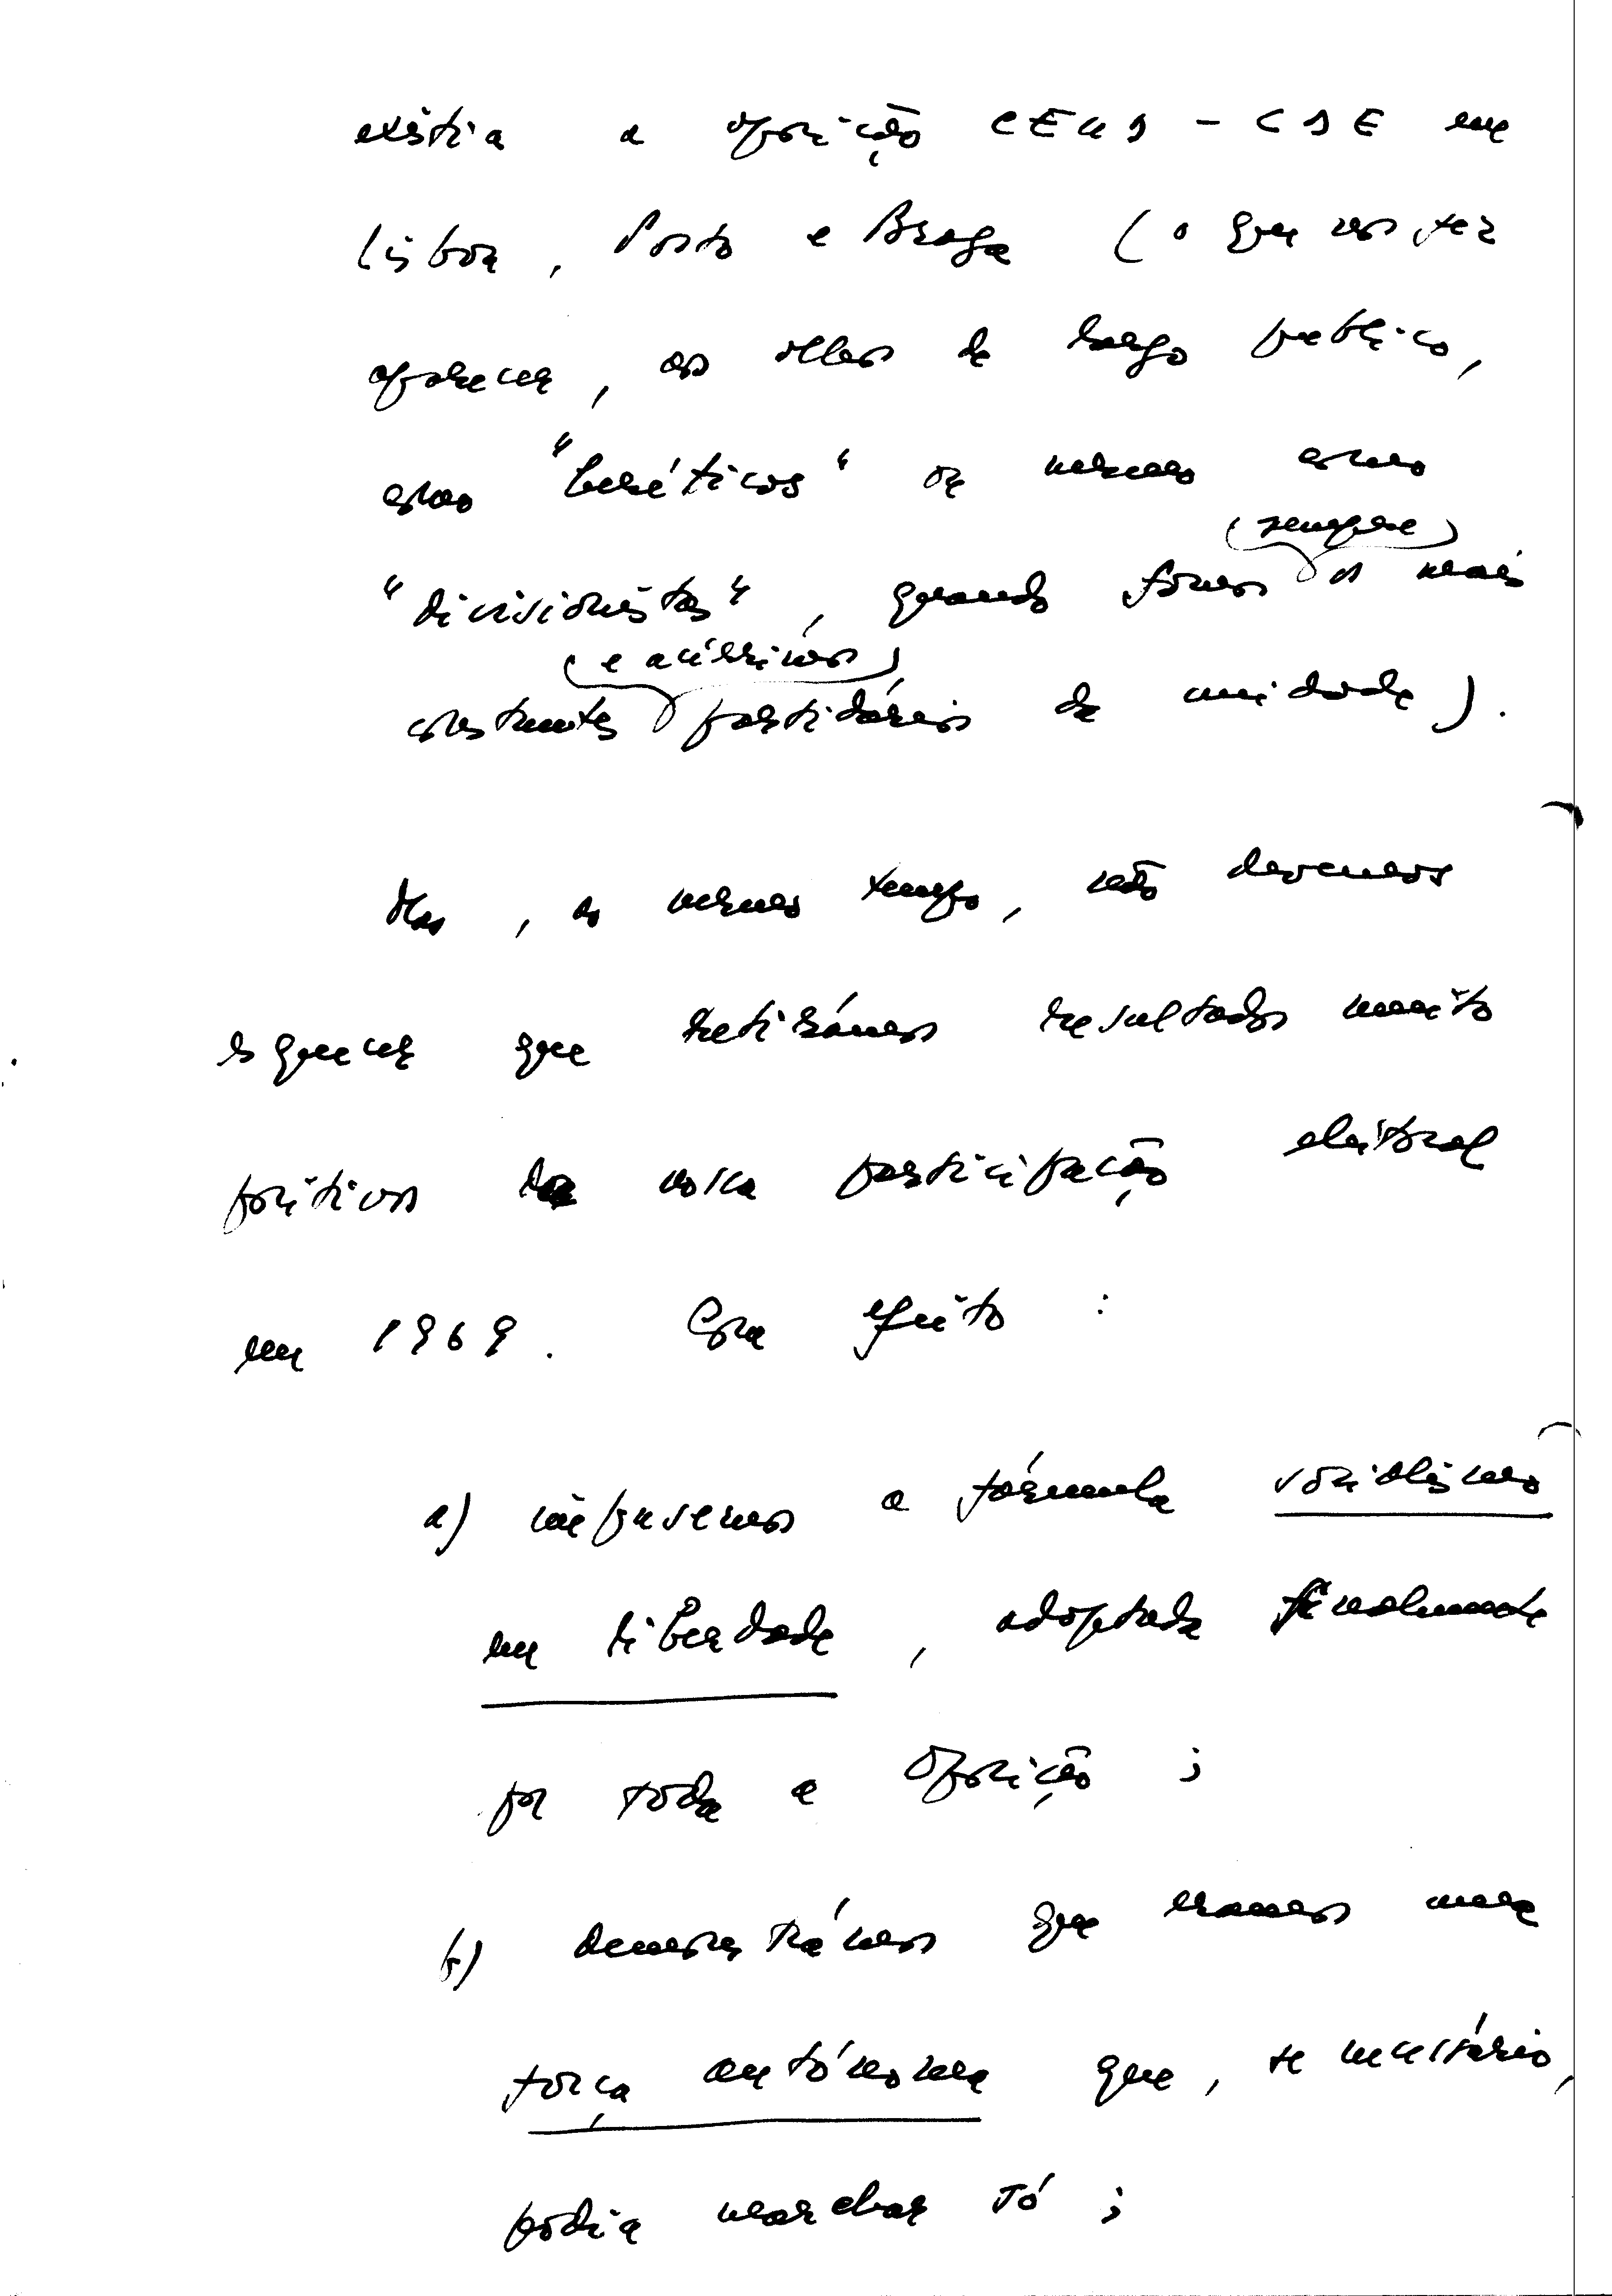 existia a oposição CEUD - CDE em
Lisboa, Porto e Braga (o que nos fez
aparecer, aos olhos do largo público,
como "heréticos" ou mesmo como
(sempre)
"divisionistas", quando fomos os mais
(e acérrimos)
constantes partidários da unidade).
Mas, ao mesmo tempo, não devemos
esquecer que retirámos resultados muito
positivos da nossa participação eleitoral
em 1969. Com efeito:
a) impusemos a fórmula socialismo
em liberdade, adoptada finalmente
por toda a Oposição;
b) demonstrámos que éramos uma
força autónoma que, se necessário,
podia marchar só;